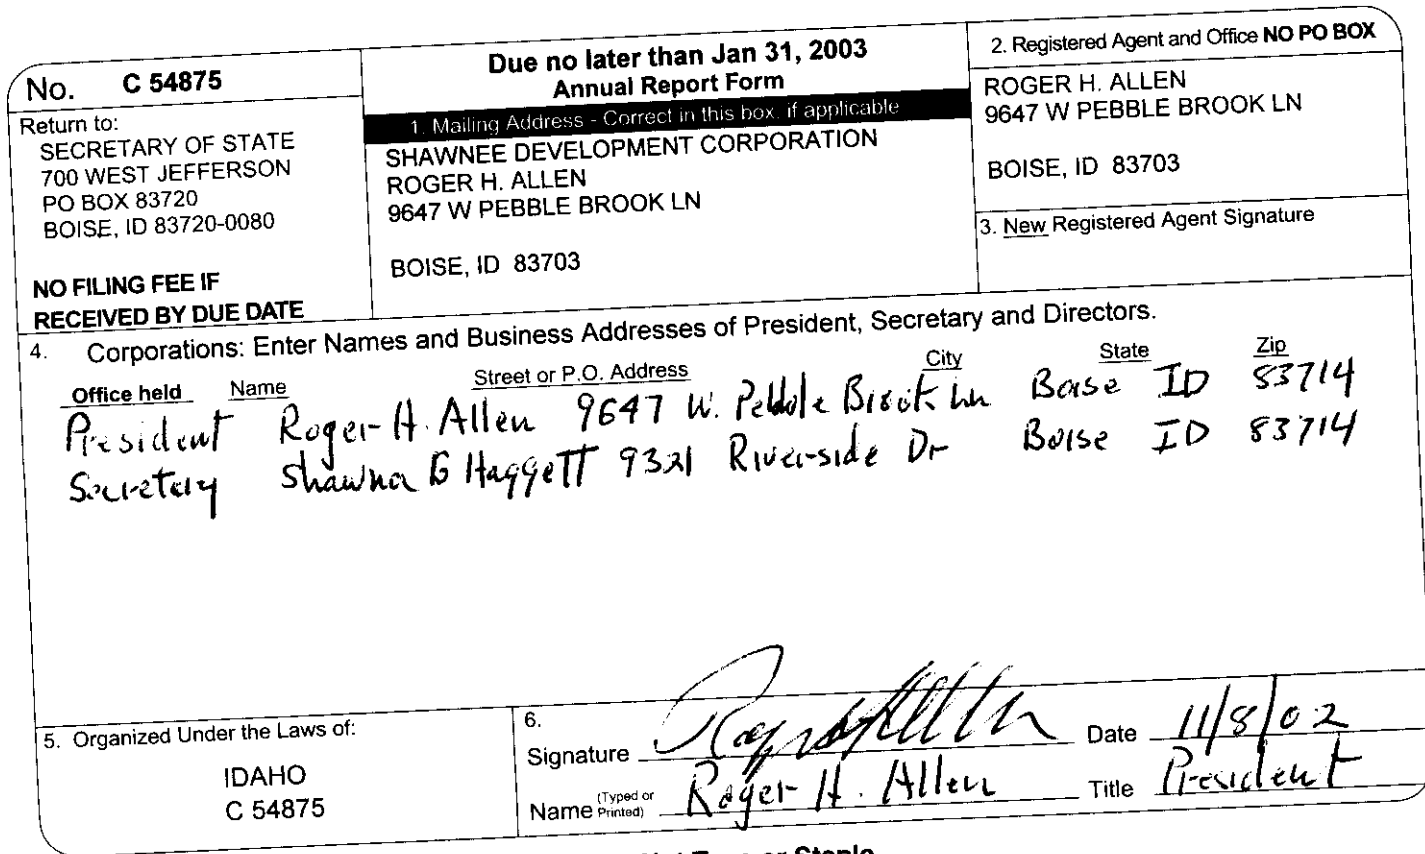 No. C 54875
Return to:
SECRETARY OF STATE
700 WEST JEFFERSON
PO BOX 83720
BOISE, ID 83720-0080
NO FILING FEE IF
RECEIVED BY DUE DATE
Due no later than Jan 31, 2003
Annual Report Form
1. Mailing Address - Correct in this box, if applicable
SHAWNEE DEVELOPMENT CORPORATION
ROGER H. ALLEN
9647 W PEBBLE BROOK LN
BOISE, ID 83703
2. Registered Agent and Office NO PO BOX
ROGER H. ALLEN
9647 W PEBBLE BROOK LN
BOISE, ID 83703
3. New Registered Agent Signature
4. Corporations: Enter Names and Business Addresses of President, Secretary and Directors.
Office held Name Street or P.O. Address City State Zip
President Roger H. Allen 9647 W. Pebble Brook Ln Boise ID 83714
Secretary Shawna G Haggett 9321 Riverside Dr Boise ID 83714
5. Organized Under the Laws of:
IDAHO
C 54875
6.
Signature Date 11/8/02
Name (Typed or Printed) Roger H. Allen Title President